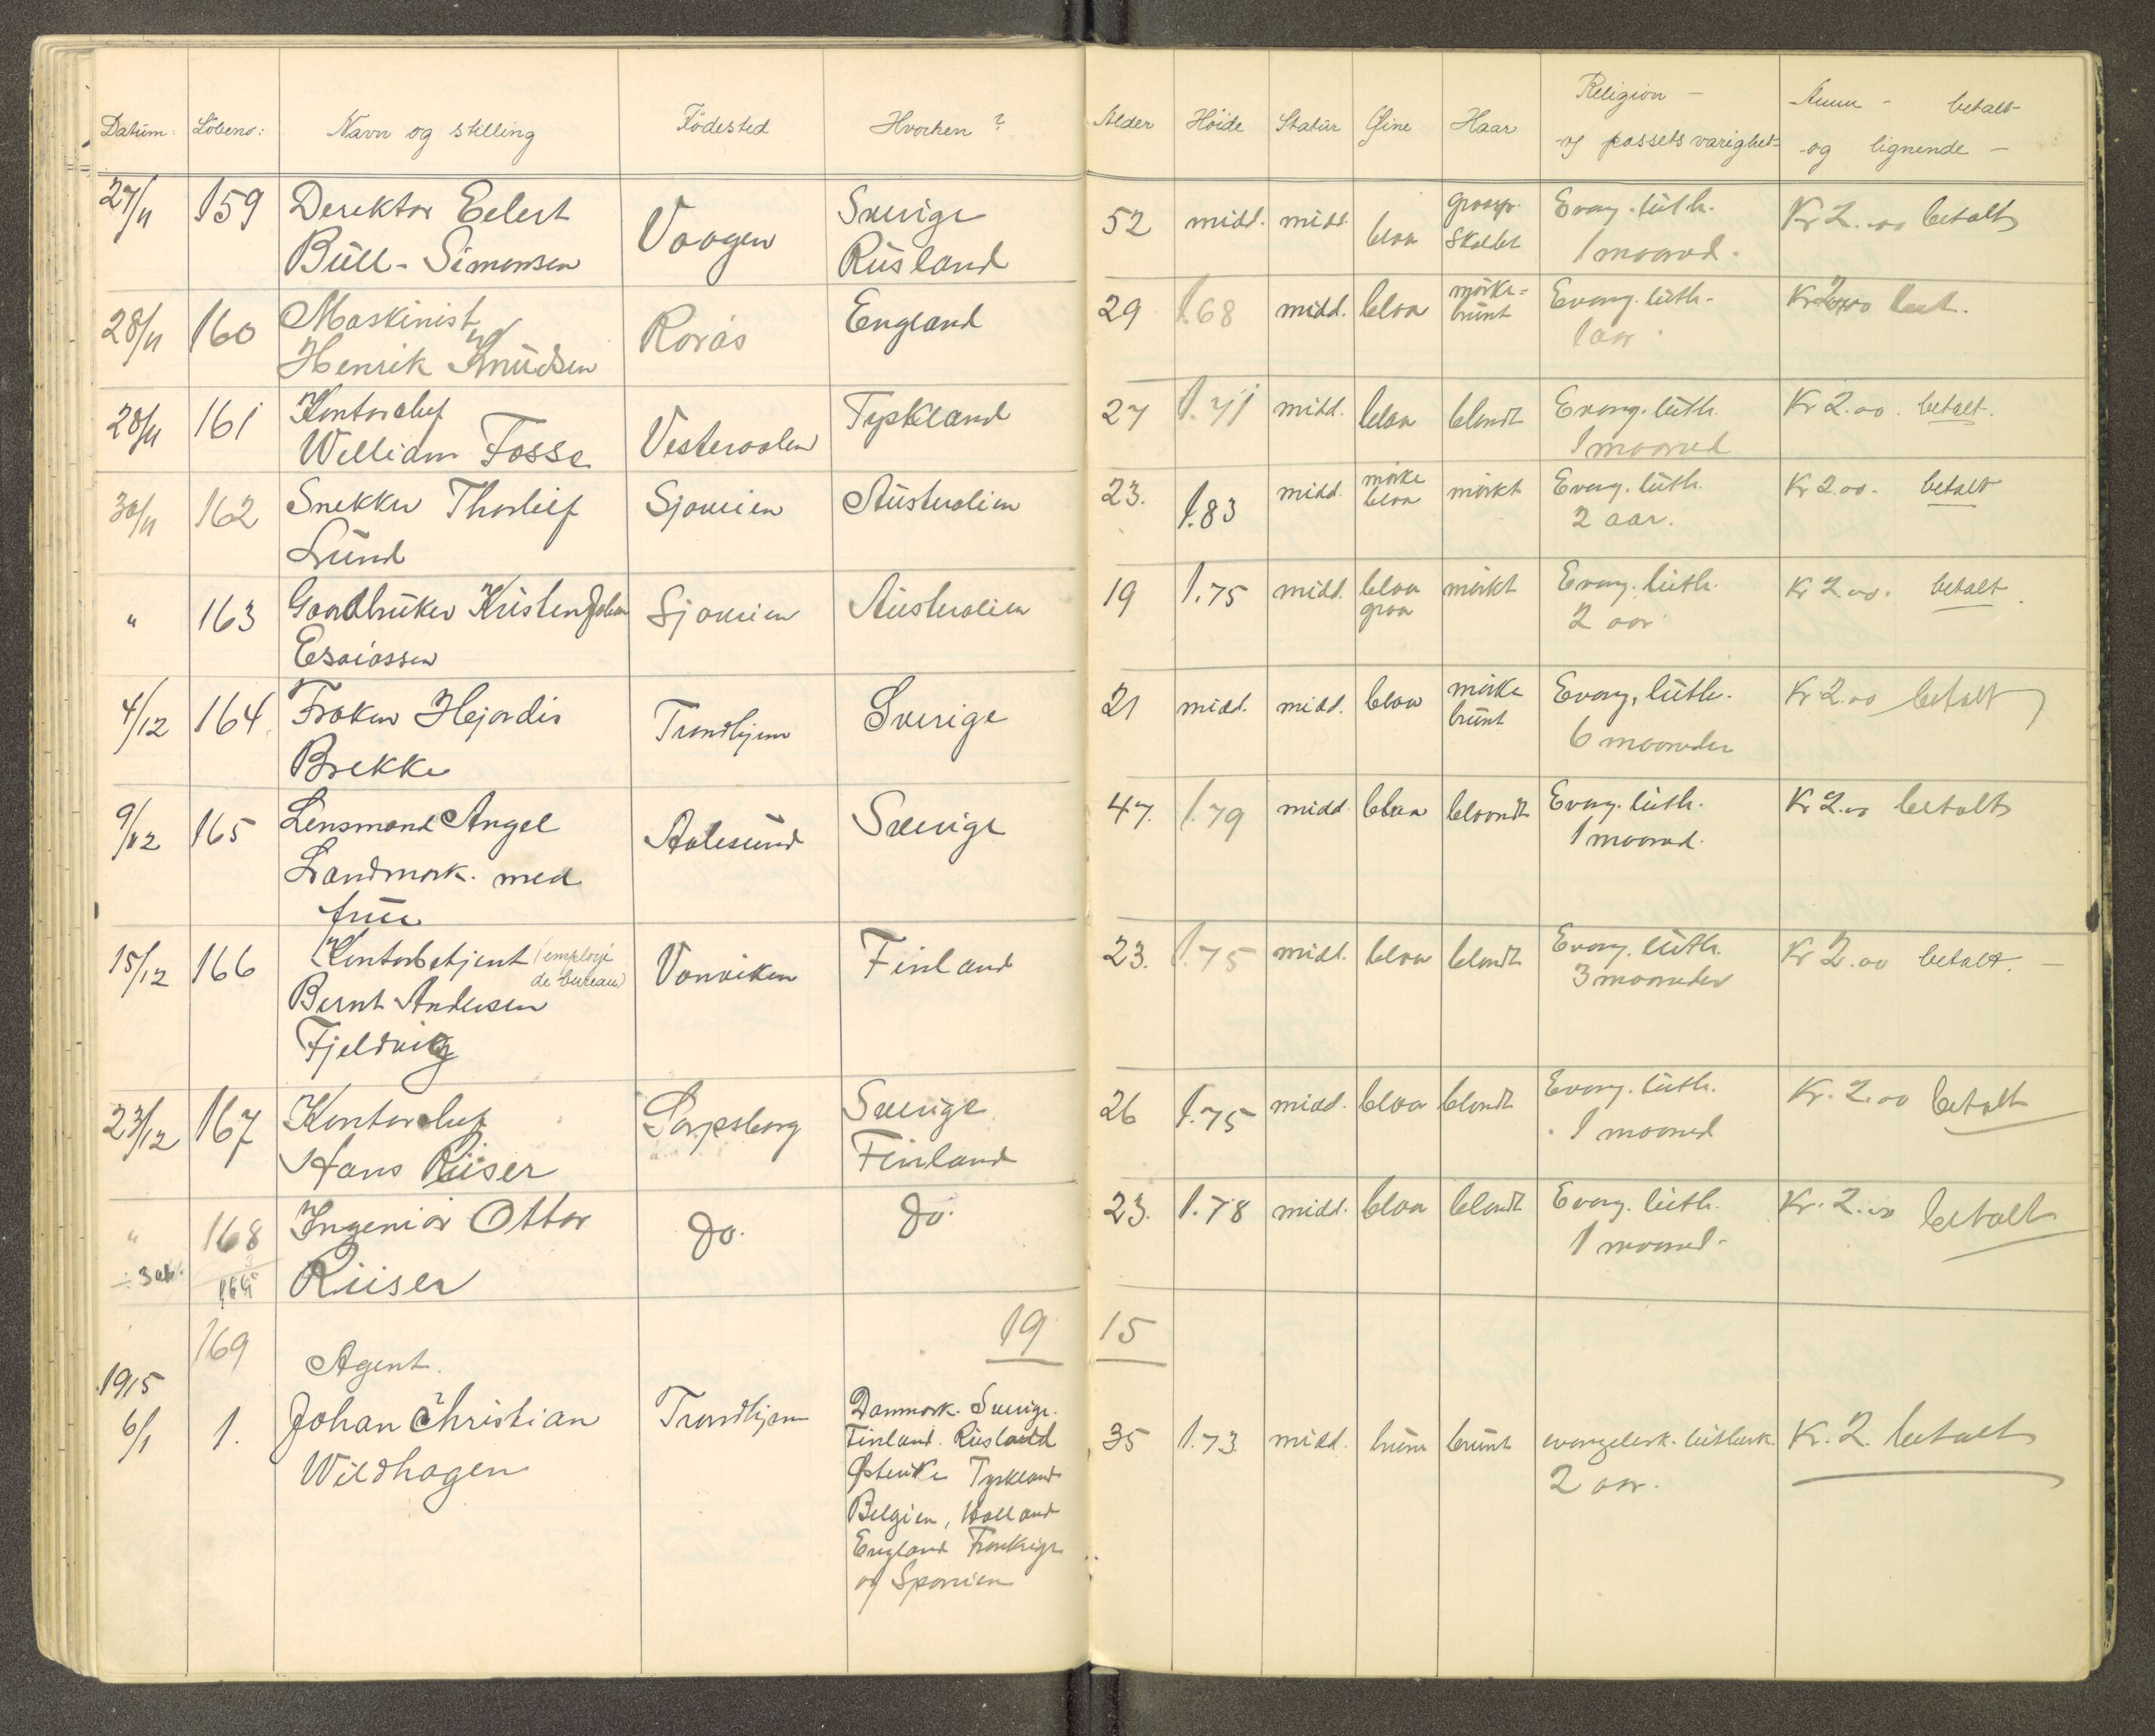 Datum: Löbeno: Navn og stilling Födested Hvorhen? Alder Höide Statur Öine Haar Religion -
og passets varighet- Anm - betalt
og lignende -
27/11 159 Direktør Eilert
Büll-Simonsen Vaagen Sverige
Rusland 52 midd. midd. blaa graaspr.
skallet Evang. luth.
1 maaned. Kr 2.00 betalt
28/11 160 Maskinist
Henrik Knudsen Röraas England 29 1.68 midd. blaa mörke=
brunt Evang. luth.
1 aar. Kr 2.00 bet.
28/11 161 Kontorchef
William Fosse Vesteraalen Tyskland 27 1.71 midd. blaa blondt Evang. luth.
1 maaned Kr 2.00. betalt.
30/11 162 Snekker Thorleif
Lund Sjøveien Australien 23. 1.83 midd. mörke
blaa mörkt Evang. luth.
2 aar. Kr 2.00. betalt
" 163 Gaardbruker Kristen Johan
Esaiassen Sjøveien Australien 19 1.75 midd. blaa
graa mörkt Evang. luth.
2 aar Kr 2.00. betalt
4/12 164. Fröken Hejordis
Brekke Trondhjem Sverige 21 midd. midd. blaa mörke
brunt Evang. luth.
6 maaneder Kr 2.00 betalt
9/12 165 Lensmand Angel
Landmark. med
frue Aalesund Sverige 47. 1.79 midd. blaa bloondt Evang. luth.
1 maaned. Kr 2.00 betalt
15/12 166 Kontorbetjent (employé
de bureau)
Bernt Andersen
Fjeldvig Vanviken Finland 23. 1.75 midd. blaa blondt Evang. luth.
3 maaneder Kr 2.00 betalt. -
23/12 167 Kontorchef
Hans Riiser Sarpsborg Sverige
Finland 26 1.75 midd. blaa blondt Evang. luth.
1 maaned Kr. 2.00 betalt
" 168 Ingeniør Ottar
Riiser do. do. 23. 1.78 midd. blaa blondt Evang. luth.
1 maaned. Kr. 2.00 betalt
169 19 15
1915
6/1 1. Agent.
Johan Christian
Wildhagen Trondhjem Danmark. Sverige.
Finland. Rusland
Østerike Tyskland
Belgien, Holland
England Frankrige
og Spanien 35 1.73. midd. brune brunt evangelisk. luthersk
2 aar. Kr. 2. betalt